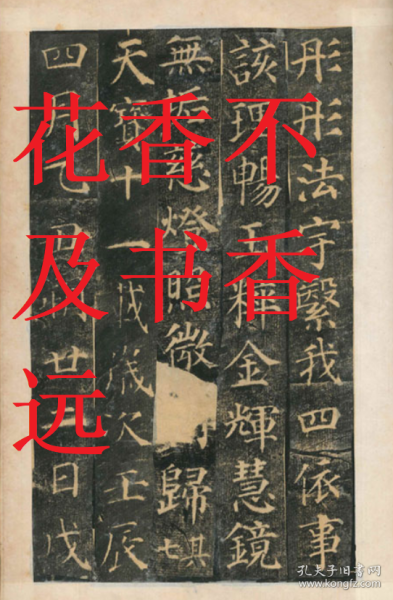 彤彤法宇繄我四依事
該理暢玉粹金輝慧鏡
無垢慈燈照微歸其七
天寶十一載歲次壬辰
四月乙丑朔廿二日戊
花香不
及书香
远
孔夫子旧书网
www.kongfz.com